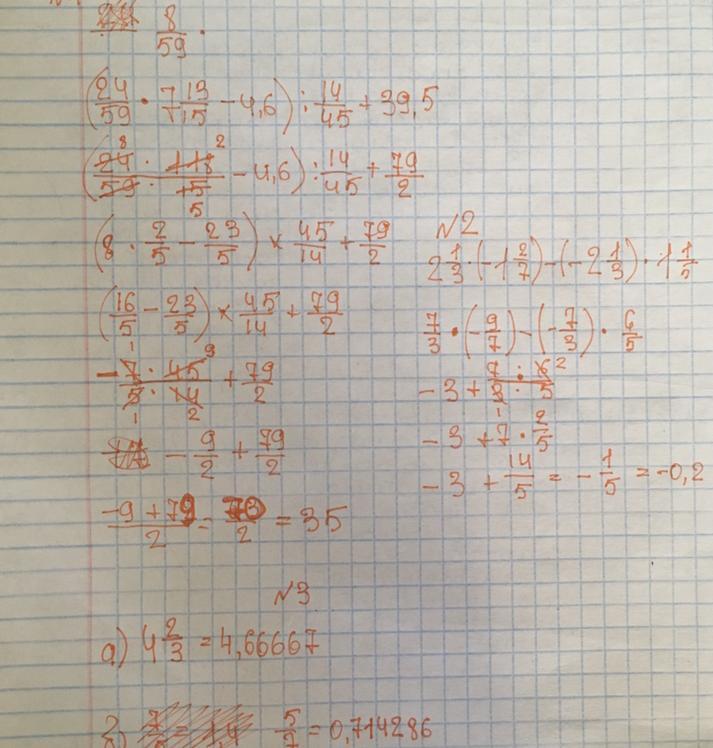 8/59 ·
(24/59 · 7 13/15 - 4,6) : 14/45 + 39,5
(24 8 · 118 2 / 59 · 15 5 - 4,6) : 14/45 + 79/2
(8 · 2/5 - 23/5) × 45/14 + 79/2
(16/5 - 23/5) × 45/14 + 79/2
- 7 1 · 45 9 / 5 1 · 14 2 + 79/2
- 9/2 + 79/2
-9 + 79 / 2 = 70/2 = 35
№2
2 1/3 · (-1 2/7) - (-2 1/3) · 1 1/5
7/3 · (-9/7) - (-7/3) · 6/5
- 3 + 7 · 6 2 / 3 1 · 5
- 3 + 7 · 2/5
- 3 + 14/5 = - 1/5 = -0,2
№3
а) 4 2/3 = 4,66667
5/7 = 0,714286